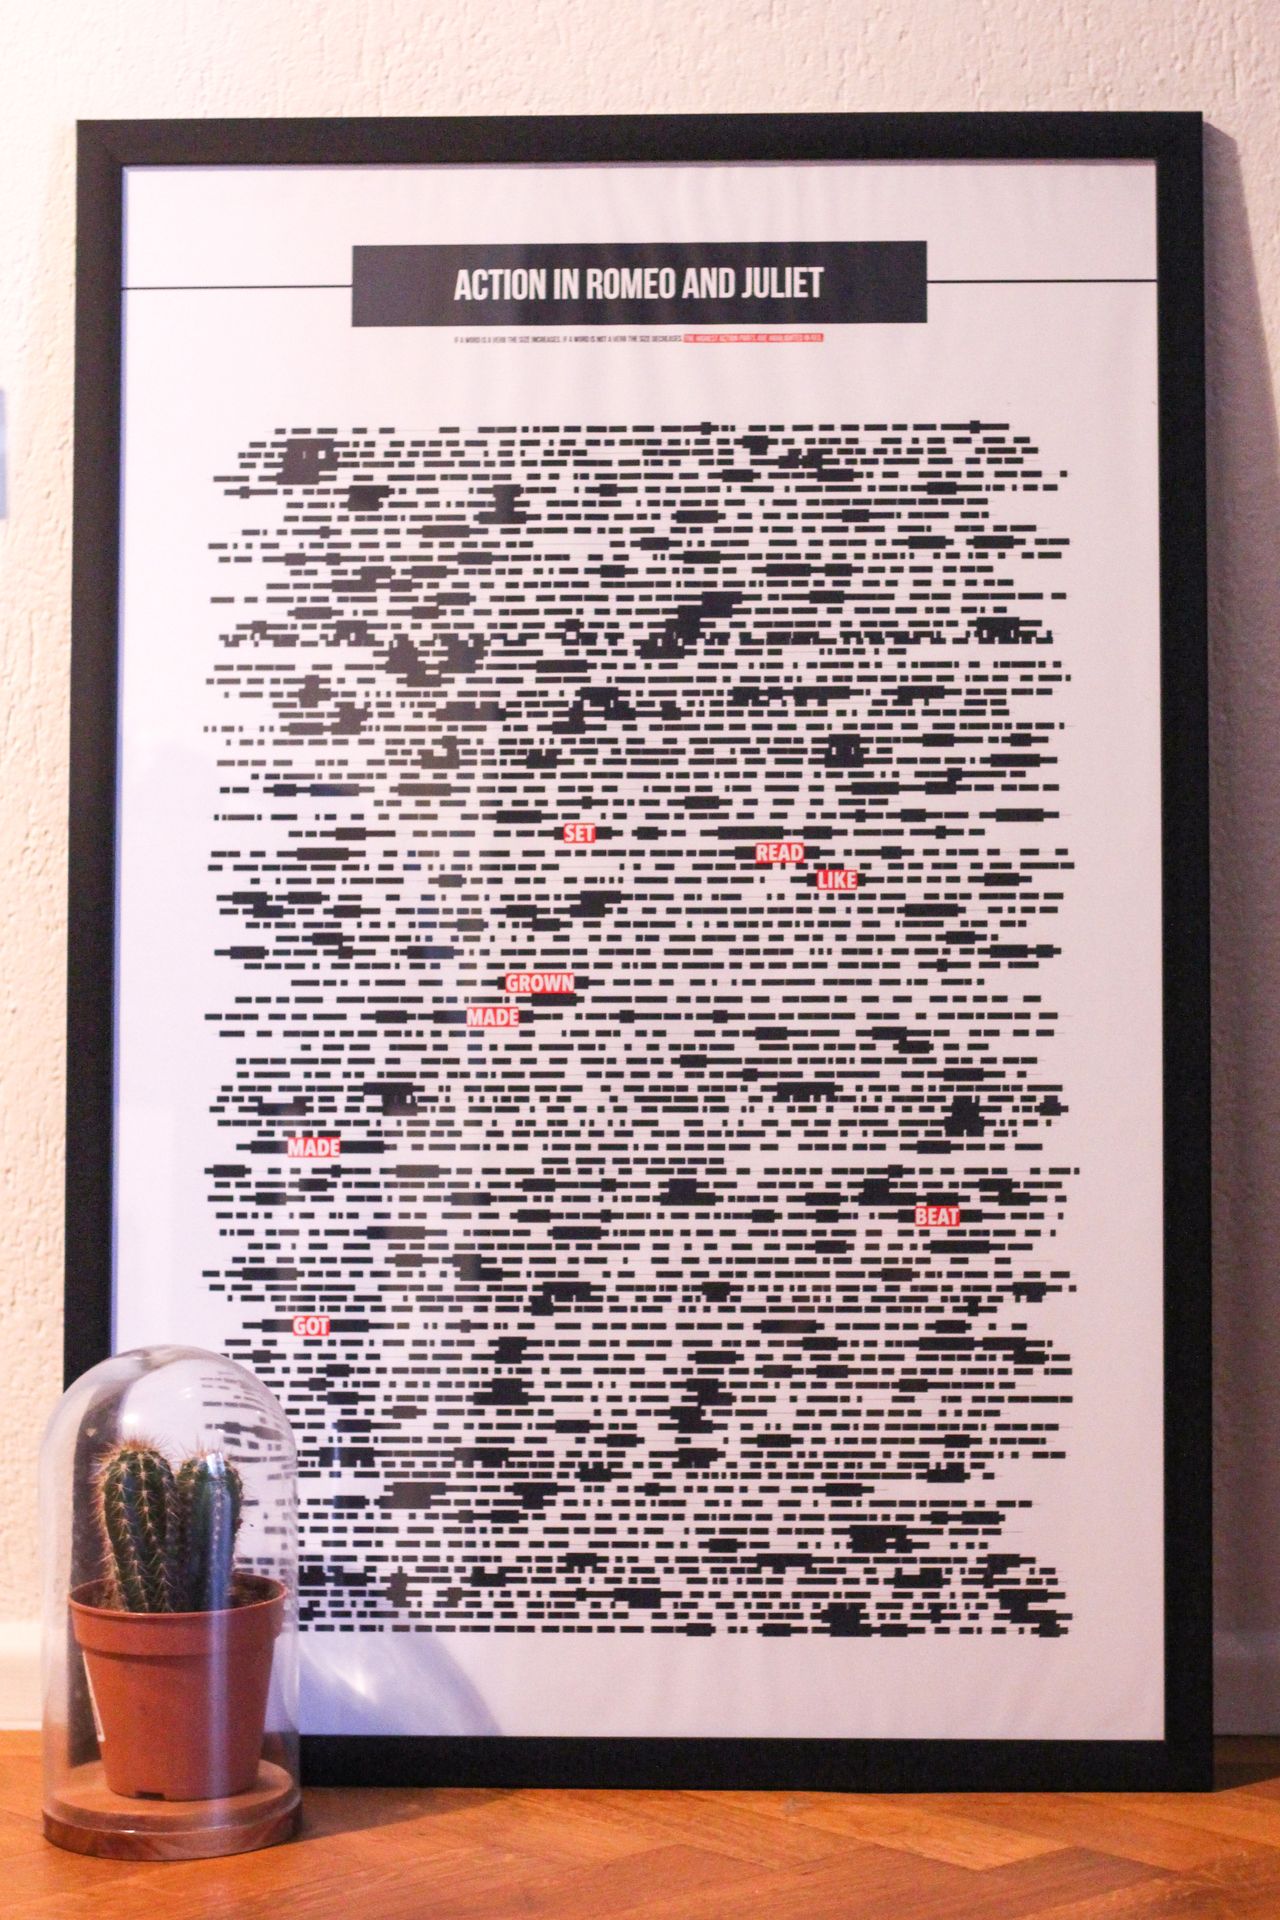 ACTION IN ROMEO AND JULIET
IF A WORD IS A VERB THE SIZE INCREASES. IF A WORD IS NOT A VERB THE SIZE DECREASES. THE HIGHEST ACTION PARTS ARE HIGHLIGHTED IN RED.
SET
READ
LIKE
GROWN
MADE
MADE
BEAT
GOT